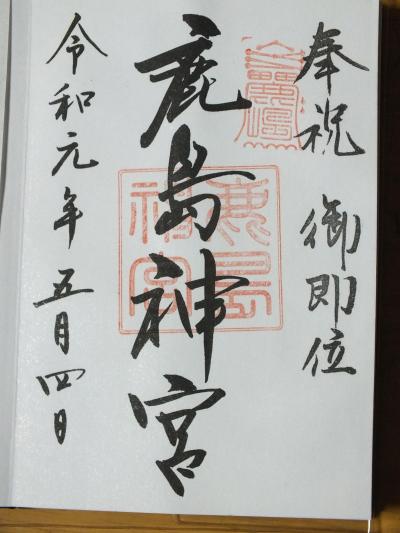 奉祝 御即位
鹿島神宮
令和元年五月四日
鹿島
神宮